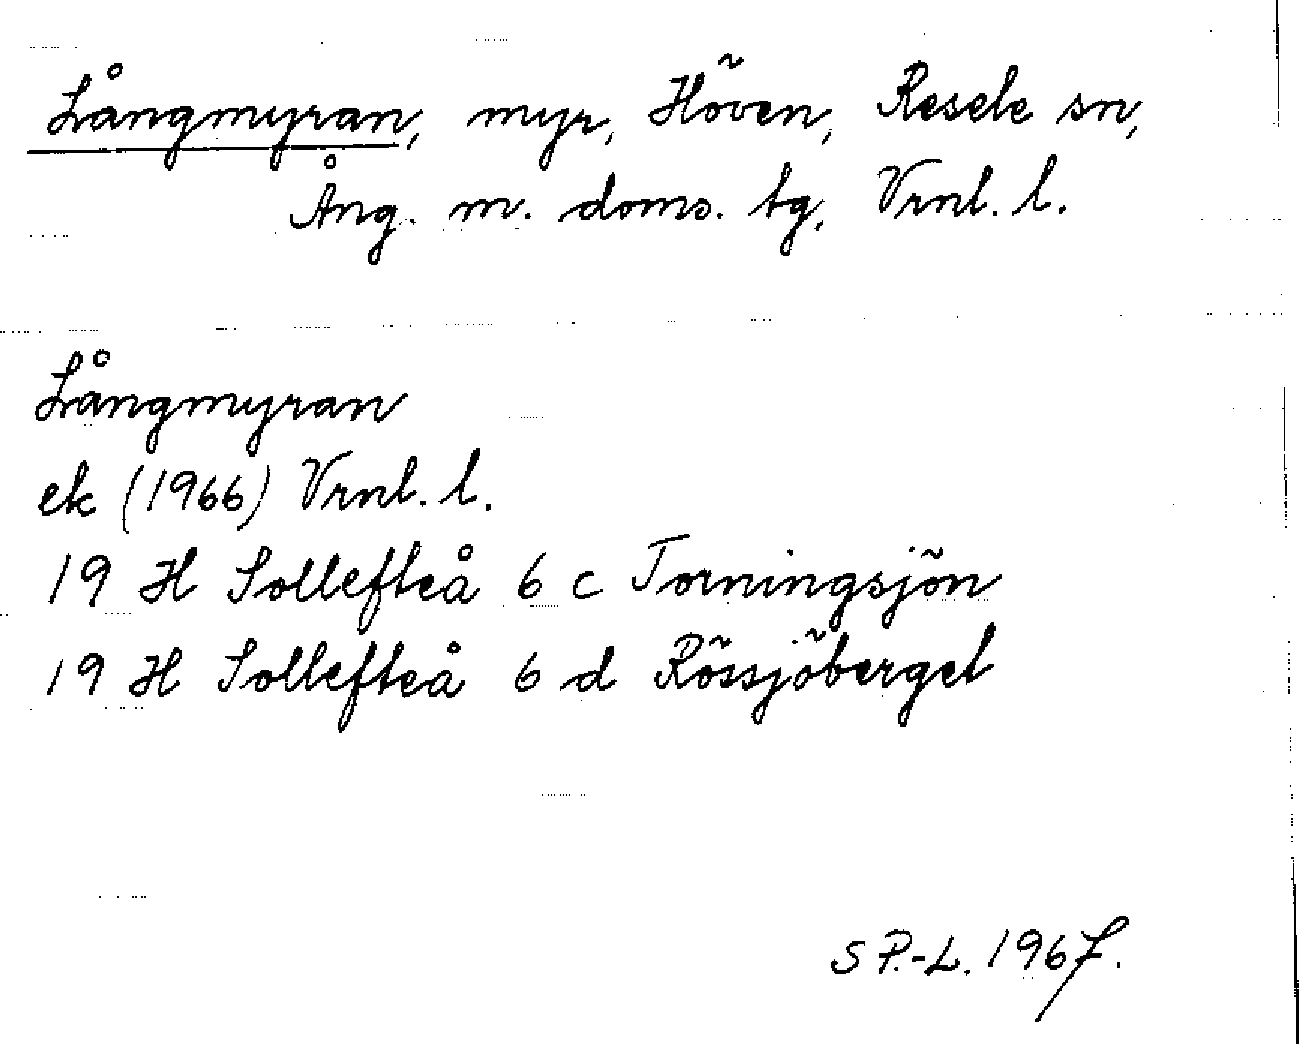 Långmyran, myr, Höven, Resele sn,
Ång. m. doms. tg, Vrnl. l.
Långmyran
ek (1966) Vrnl. l.
19 H Sollefteå 6 c Torningsjön
19 H Sollefteå 6 d Rössjöberget
S P.-L. 1967.